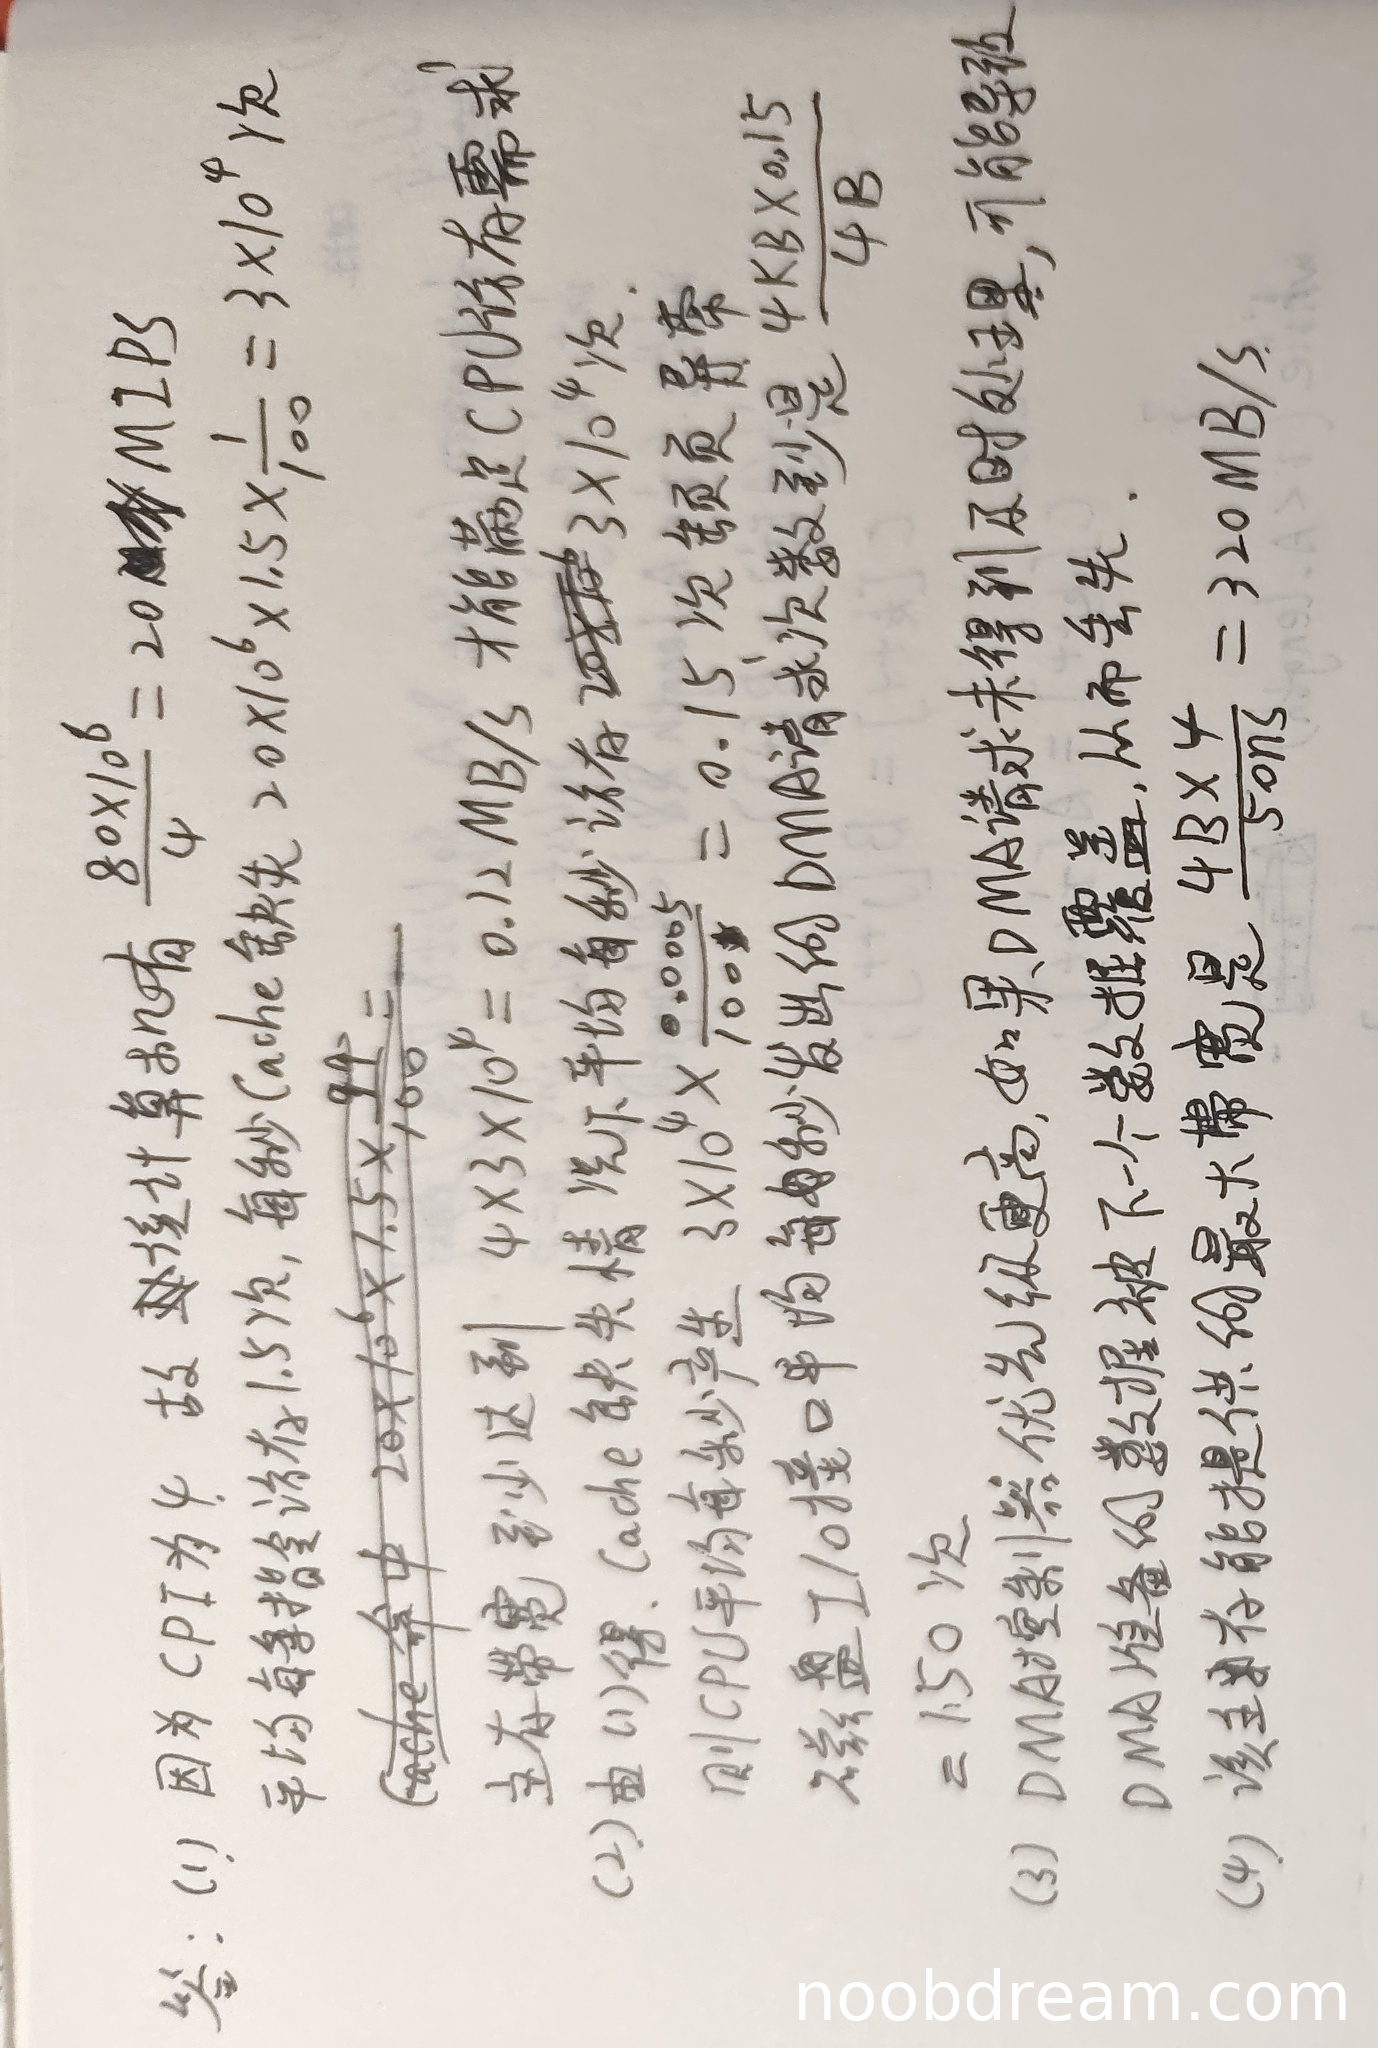 答：(1) 因为CPI为4 故 该计算机有 80×10⁶/4 = 20 MIPS
平均每条指令访存1.5次，每秒Cache缺失 20×10⁶×1.5×1/100 = 3×10⁴次
Cache命中 20×10⁶×1.5×99/100 =
主存带宽至少达到 4×3×10⁴ = 0.12MB/s 才能满足CPU访存需求
(2) 由(1)得. Cache缺失情况下平均每秒访存 3×10⁴次.
则CPU平均每秒产生 3×10⁴×0.0005/100 = 0.15次缺页异常
磁盘I/O接口平均每秒发出的DMA请求次数至少是 4KB×0.15/4B
= 150次
(3) DMA控制器优先级更高，如果DMA请求未得到及时处理，可能导致
DMA准备的数据被下一个数据覆盖，从而丢失.
(4) 该主存能提供的最大带宽是 4B×4/50ns = 320MB/s.
noobdream.com